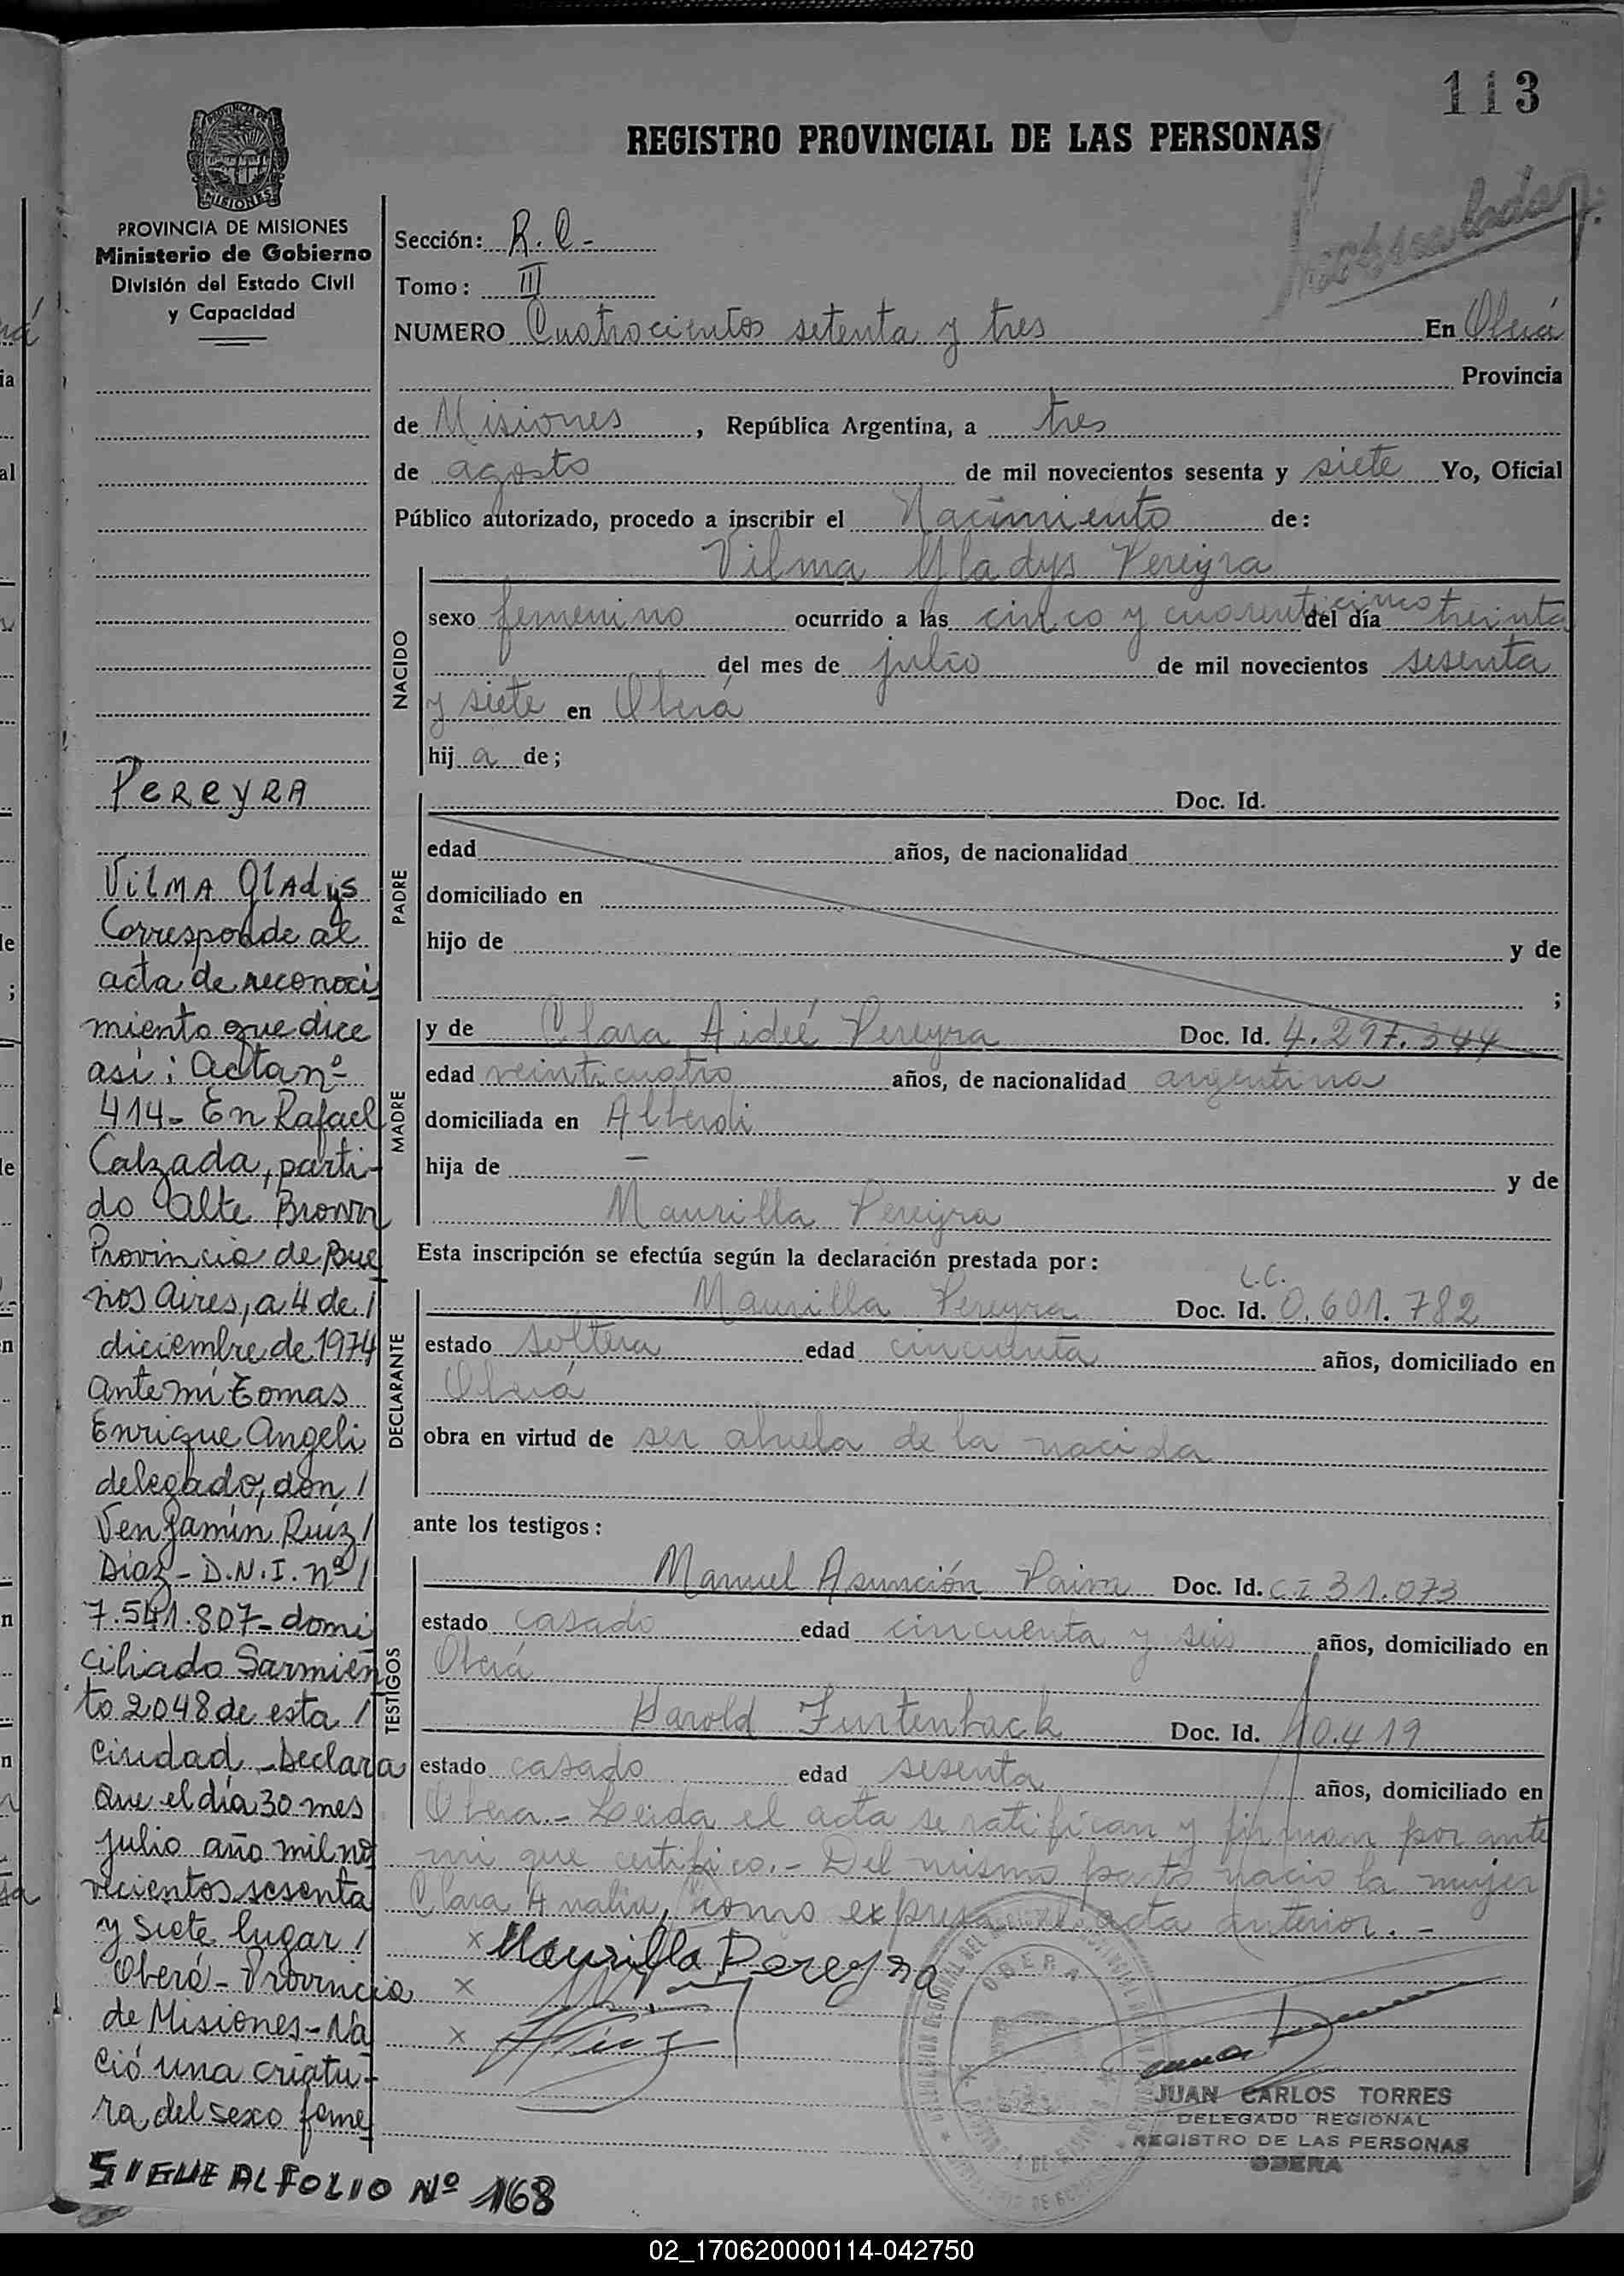 113
REGISTRO PROVINCIAL DE LAS PERSONAS
PROVINCIA DE MISIONES
Ministerio de Gobierno
División del Estado Civil
y Capacidad
PEREYRA
VILMA GLADYS
Corresponde al
acta de reconoci
miento que dice
asi: Acta nº
414- En Rafael
Calzada, parti-
do Alte Brown
Provincia de Bue
nos Aires, a 4 de /
diciembre de 1974
ante mi Tomas
Enrique Angeli
delegado, don /
Venjamin Ruiz /
Diaz - D.N.I. nº /
7.541.807- domi
ciliado Sarmien
to 2048 de esta /
Ciudad - Declara
Que el día 30 mes
julio año mil no
vecientos sesenta
y siete lugar /
Oberá - Provincia
de Misiones - Na
ció una criatu-
ra del sexo feme
SIGUE AL FOLIO Nº 168
Sección: R. C -
Tomo: III
NUMERO Cuatrocientos setenta y tres En Oberá
Provincia
de Misiones, República Argentina, a tres
de agosto de mil novecientos sesenta y siete Yo, Oficial
Público autorizado, procedo a inscribir el Nacimiento de:
NACIDO
Vilma Gladys Pereyra
sexo femenino ocurrido a las cinco y cuarenticinco del día treinta
del mes de julio de mil novecientos sesenta
y siete en Oberá
hij a de;
PADRE
Doc. Id.
edad años, de nacionalidad
domiciliado en
hijo de y de
;
MADRE
y de Clara Aideé Pereyra Doc. Id. 4.297.344
edad veinticuatro años, de nacionalidad argentina
domiciliada en Alberdi
hija de — y de
Maurilla Pereyra
Esta inscripción se efectúa según la declaración prestada por:
DECLARANTE
L.C.
Maurilla Pereyra Doc. Id. 0.601.782
estado soltera edad cincuenta años, domiciliado en
Oberá
obra en virtud de ser abuela de la nacida
ante los testigos:
TESTIGOS
Manuel Asunción Paiva Doc. Id. C.I 31.073
estado casado edad cincuenta y seis años, domiciliado en
Oberá
Harold Furtenback Doc. Id. 10.419
estado casado edad sesenta años, domiciliado en
Oberá - Leida el acta se ratifican y firman por ante
mi que certifico.- Del mismo parto nació la mujer
Clara Analia, como expresa el acta anterior. -
x Maurilla Pereyra
x
x
OBERA
JUAN CARLOS TORRES
DELEGADO REGIONAL
REGISTRO DE LAS PERSONAS
OBERA
02_170620000114-042750